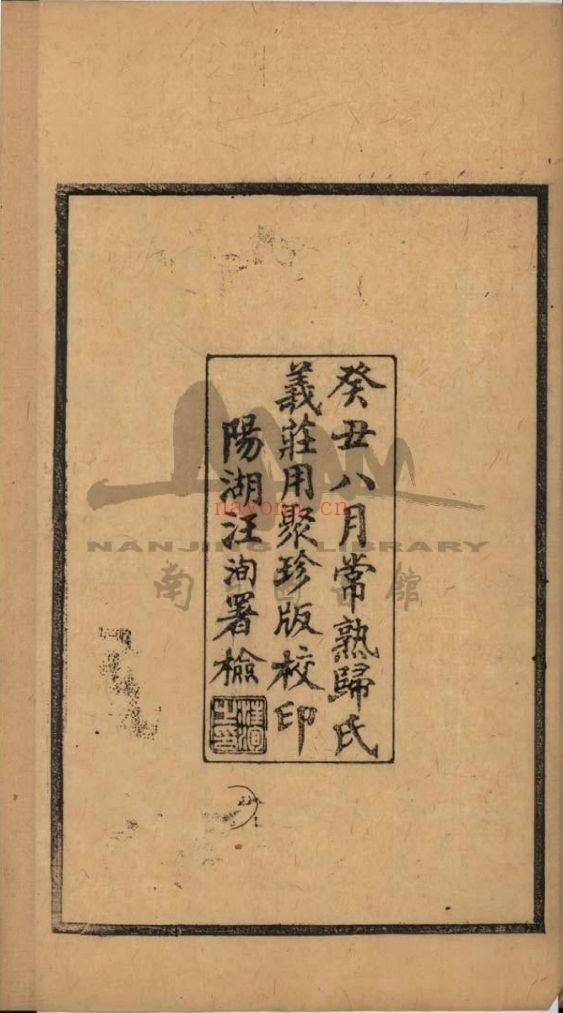 癸丑八月常熟歸氏
義莊用聚珍版校印
陽湖汪洵署檢
汪洵之印
nayona.cn
NANJING LIBRARY
南
館